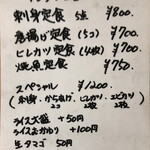 刺身定食 5点 ¥800.
唐揚げ定食 (5コ) ¥700
ヒレカツ定食 (4枚) ¥700
焼魚定食 ¥750.
スペシャル ¥1200
(刺身、から揚げ、ヒレカツ、エビカツ)
2コ 2枚 2枚
ライス大盛 +50円
ライスおかわり +100円
生タマゴ 50円